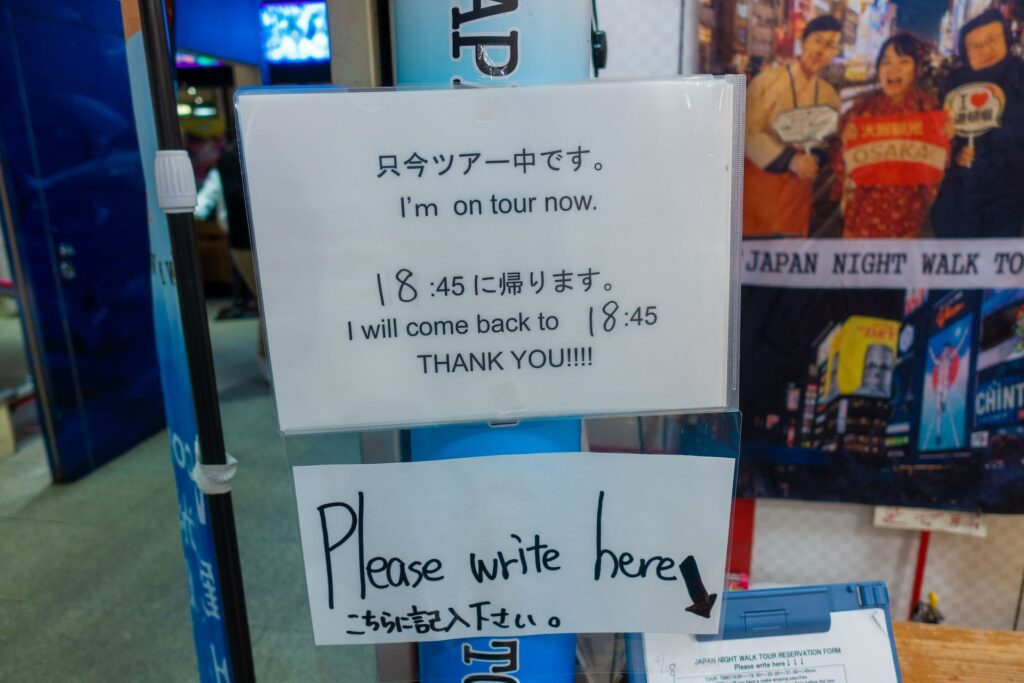 只今ツアー中です。
I'm on tour now.
18:45に帰ります。
I will come back to 18:45
THANK YOU!!!!
Please write here
こちらに記入下さい。
大阪観光
OSAKA
I
JAPAN NIGHT WALK TO
CHINT
JAPAN NIGHT WALK TOUR RESERVATION FORM
Please write here!!!